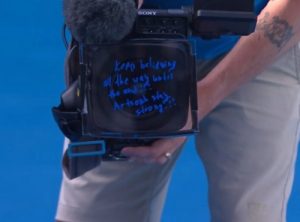 SONY
Keep believing
all the way until
the end...
Artsakh stay
strong...!